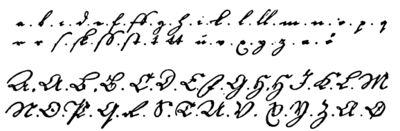 a. b. c. d. e. f. ff. g. h. i. k. l. ll. m. n. o. p. q
r r ſ. ſk. ſſ. ſt. t. tt u. v. x. y. z. ä. ö
A. A. B. B. C. D. E. F. G. H. I. K. L. M
N. O. P. Q. R. S. T. U. V. X. Y. Z. Ä. Ö